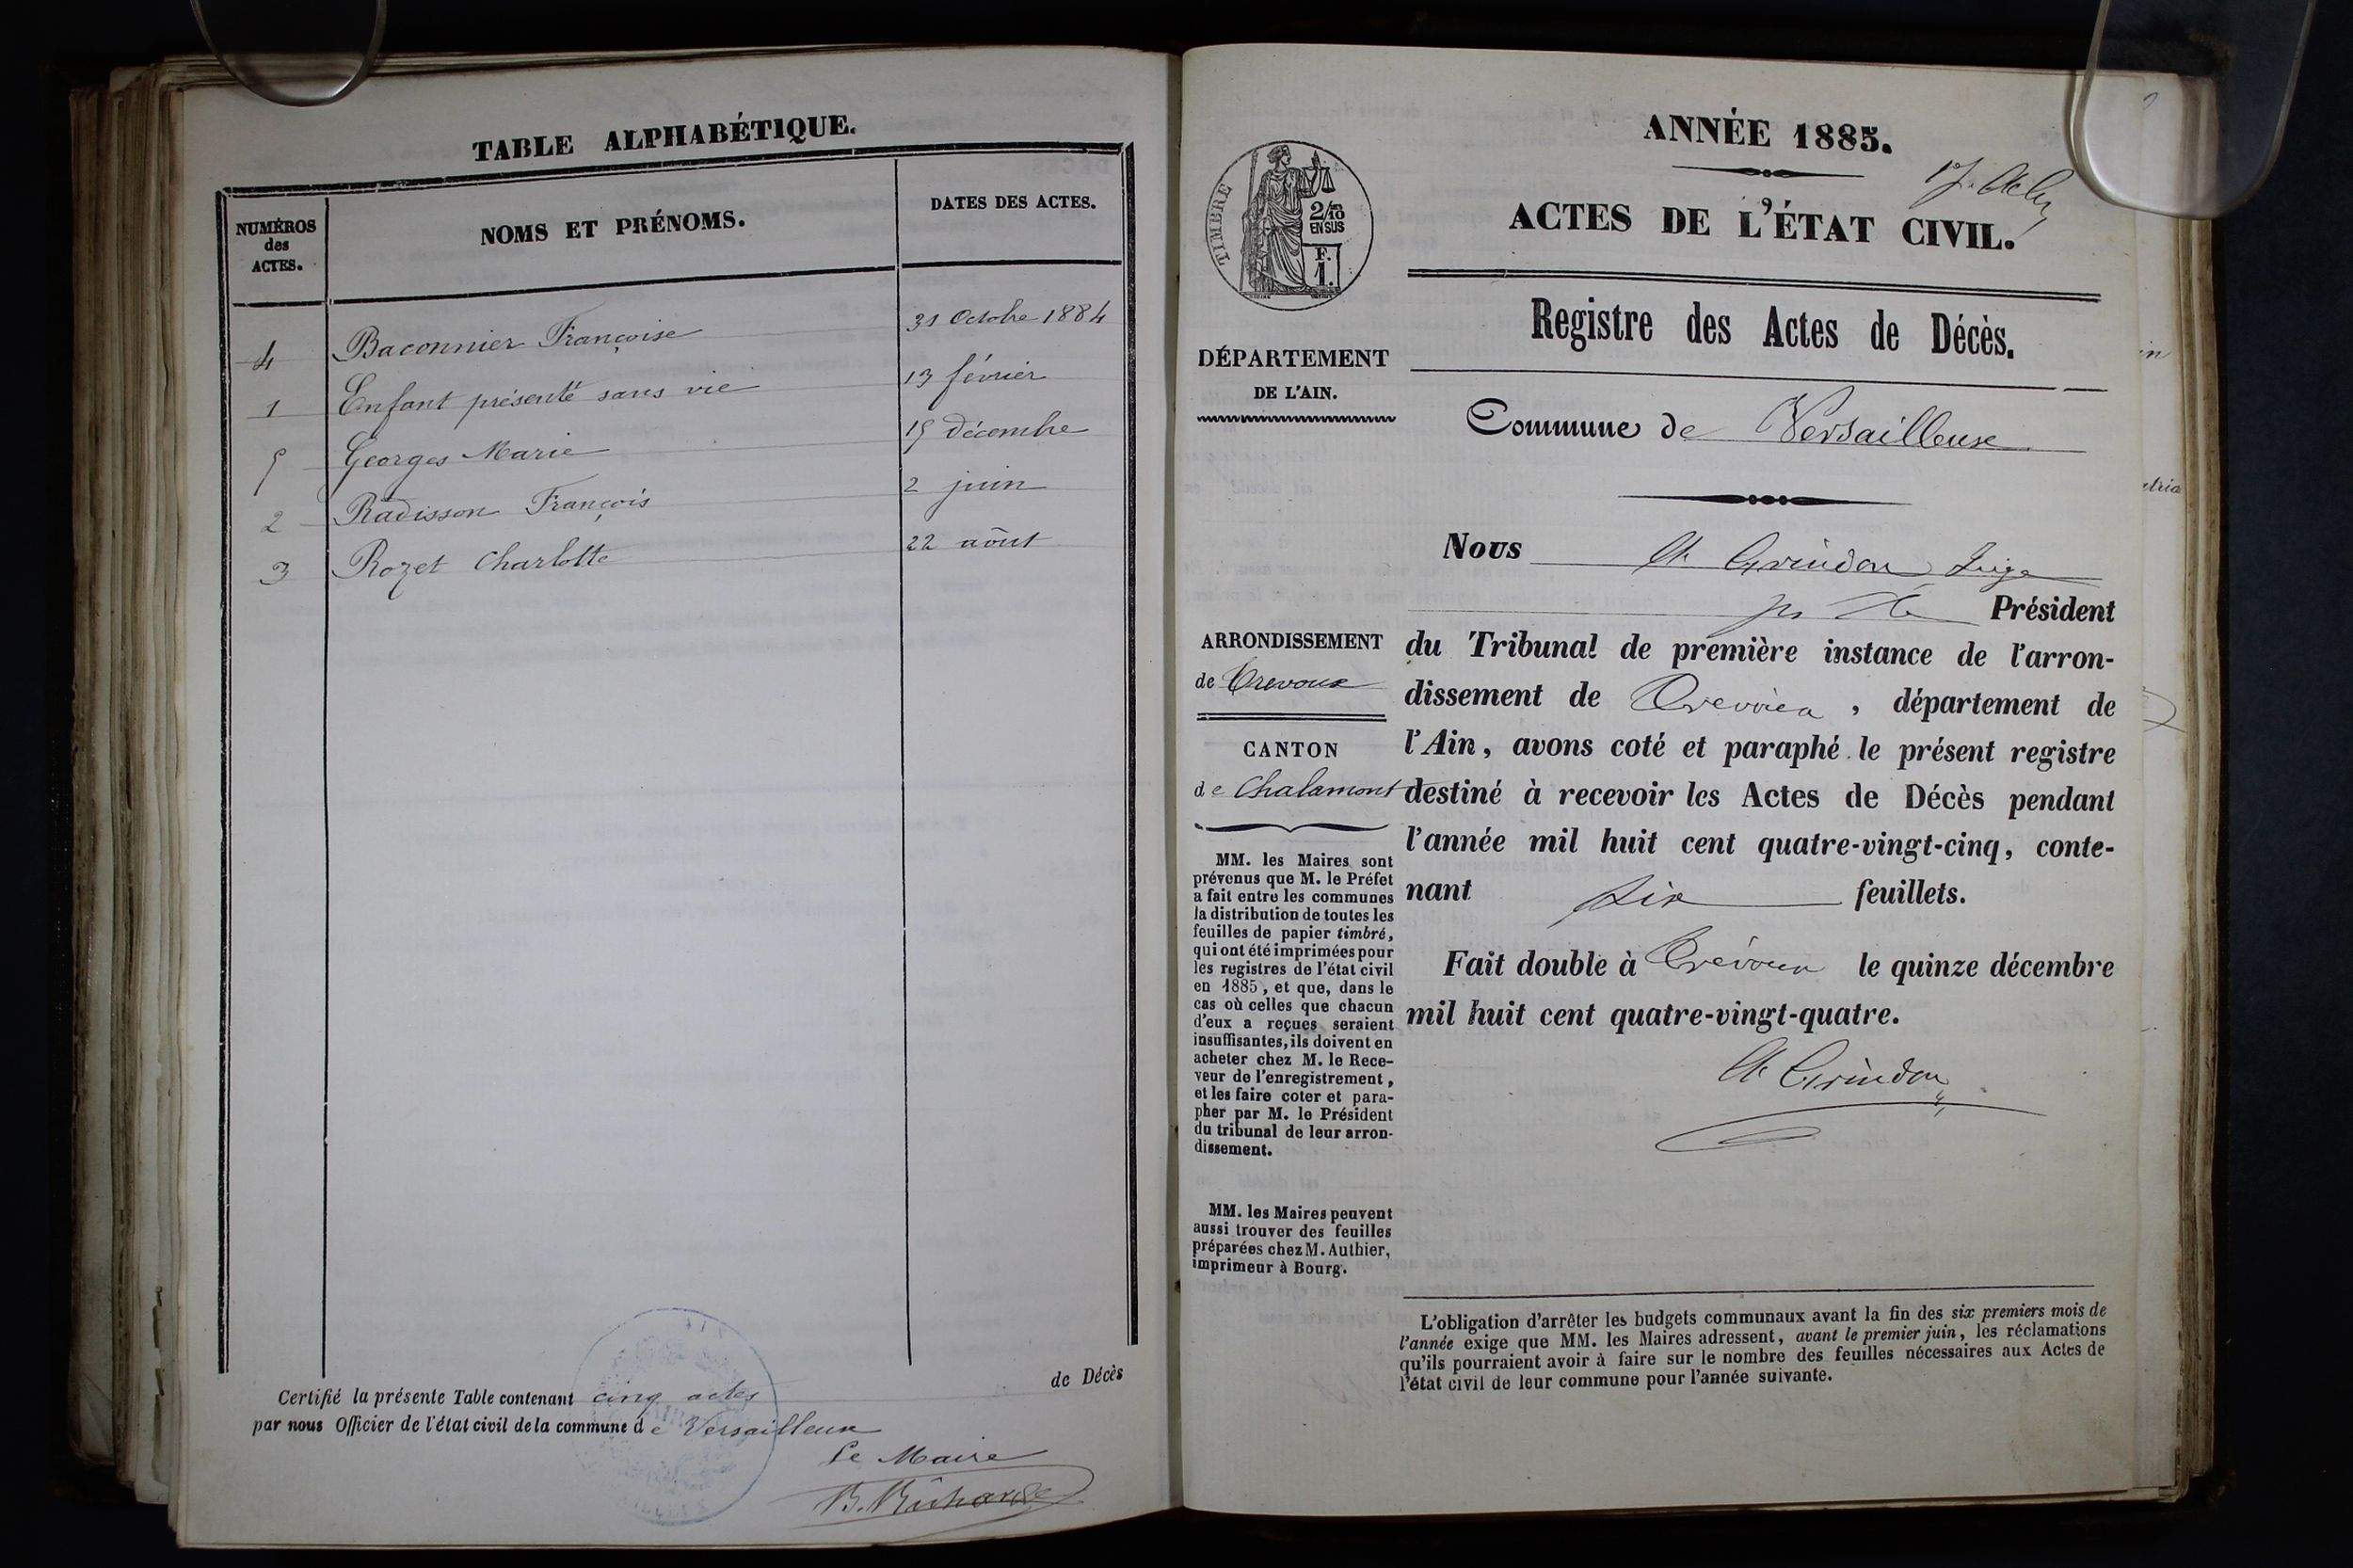 TABLE ALPHABÉTIQUE.
NUMÉROS
des
ACTES.
NOMS ET PRÉNOMS.
DATES DES ACTES.
4 Baconnier Françoise 31 Octobre 1884
1 Enfant présenté sans vie 13 février
5 Georges Marie 15 décembre
2 Radisson François 2 juin
3 Rozet Charlotte 22 août
Certifié la présente Table contenant cinq actes de Décès
par nous Officier de l'état civil de la commune de Versailleux
Le Maire
ANNÉE 1885.
ACTES DE L'ÉTAT CIVIL.
TIMBRE
2/10
EN SUS
F.
1.
Registre des Actes de Décès.
DÉPARTEMENT
DE L'AIN.
Commune de Versailleux
Nous Grindon Juge
Président
du Tribunal de première instance de l'arron-
dissement de Trévoux, département de
l'Ain, avons coté et paraphé le présent registre
destiné à recevoir les Actes de Décès pendant
l'année mil huit cent quatre-vingt-cinq, conte-
nant six feuillets.
Fait double à Trévoux le quinze décembre
mil huit cent quatre-vingt-quatre.
Grindon
ARRONDISSEMENT
de Trevoux
CANTON
de Chalamont
MM. les Maires sont
prévenus que M. le Préfet
a fait entre les communes
la distribution de toutes les
feuilles de papier timbré,
qui ont été imprimées pour
les registres de l'état civil
en 1885, et que, dans le
cas où celles que chacun
d'eux a reçues seraient
insuffisantes, ils doivent en
acheter chez M. le Rece-
veur de l'enregistrement,
et les faire coter et para-
pher par M. le Président
du tribunal de leur arron-
dissement.
MM. les Maires peuvent
aussi trouver des feuilles
préparées chez M. Authier,
imprimeur à Bourg.
L'obligation d'arrêter les budgets communaux avant la fin des six premiers mois de
l'année exige que MM. les Maires adressent, avant le premier juin, les réclamations
qu'ils pourraient avoir à faire sur le nombre des feuilles nécessaires aux Actes de
l'état civil de leur commune pour l'année suivante.